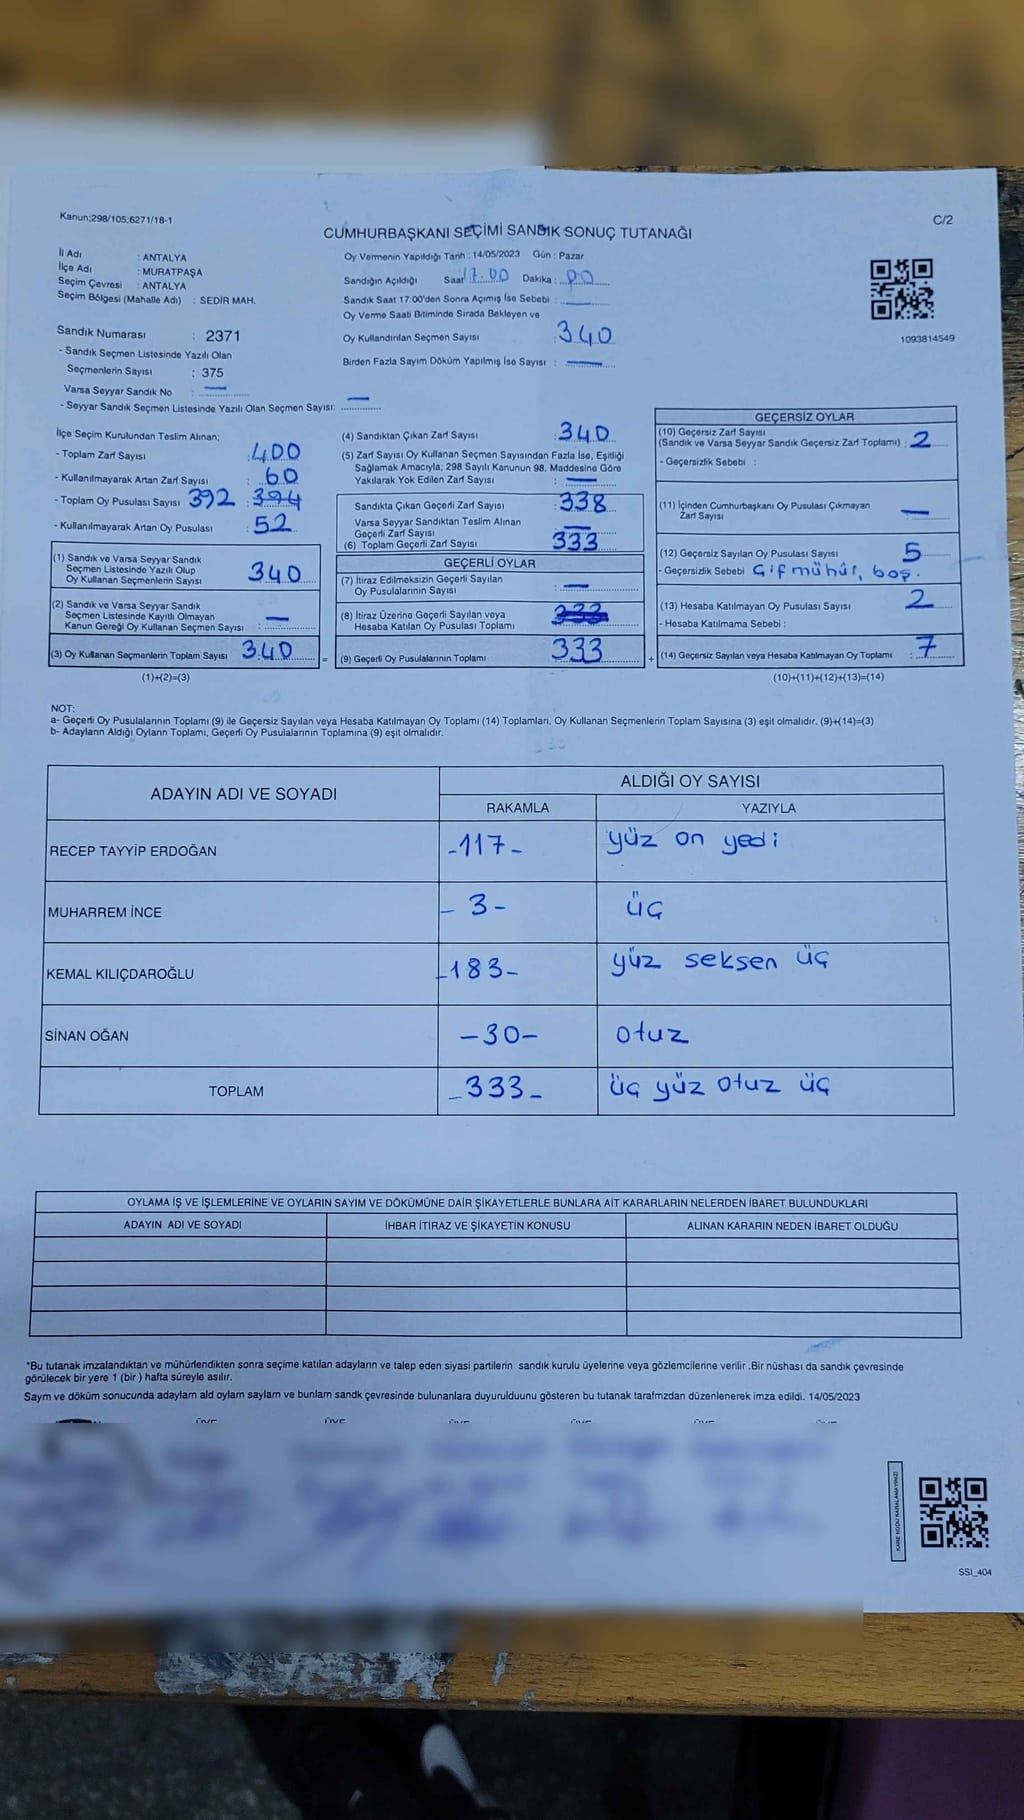 Kanun;298/105;6271/18-1
C/2
CUMHURBAŞKANI SEÇİMİ SANDIK SONUÇ TUTANAĞI
İl Adı : ANTALYA
İlçe Adı : MURATPAŞA
Seçim Çevresi : ANTALYA
Seçim Bölgesi (Mahalle Adı) : SEDİR MAH.
Sandık Numarası : 2371
- Sandık Seçmen Listesinde Yazılı Olan
Seçmenlerin Sayısı : 375
Varsa Seyyar Sandık No : —
- Seyyar Sandık Seçmen Listesinde Yazılı Olan Seçmen Sayısı: —
Oy Vermenin Yapıldığı Tarih : 14/05/2023 Gün : Pazar
Sandığın Açıldığı Saat 17.00 Dakika : 00
Sandık Saat 17:00'den Sonra Açımış İse Sebebi : —
Oy Verme Saati Bitiminde Sırada Bekleyen ve
Oy Kullandırılan Seçmen Sayısı : 340
Birden Fazla Sayım Döküm Yapılmış İse Sayısı : —
1093814549
İlçe Seçim Kurulundan Teslim Alınan;
- Toplam Zarf Sayısı : 400
- Kullanılmayarak Artan Zarf Sayısı : 60
- Toplam Oy Pusulası Sayısı 392 : 394
- Kullanılmayarak Artan Oy Pusulası : 52
(1) Sandık ve Varsa Seyyar Sandık
Seçmen Listesinde Yazılı Olup
Oy Kullanan Seçmenlerin Sayısı 340
(2) Sandık ve Varsa Seyyar Sandık
Seçmen Listesinde Kayıtlı Olmayan
Kanun Gereği Oy Kullanan Seçmen Sayısı : —
(3) Oy Kullanan Seçmenlerin Toplam Sayısı 340
(1)+(2)=(3)
=
(4) Sandıktan Çıkan Zarf Sayısı : 340
(5) Zarf Sayısı Oy Kullanan Seçmen Sayısından Fazla İse, Eşitliği
Sağlamak Amacıyla; 298 Sayılı Kanunun 98. Maddesine Göre
Yakılarak Yok Edilen Zarf Sayısı : —
Sandıkta Çıkan Geçerli Zarf Sayısı : 338
Varsa Seyyar Sandıktan Teslim Alınan
Geçerli Zarf Sayısı : —
(6) Toplam Geçerli Zarf Sayısı 333
GEÇERLİ OYLAR
(7) İtiraz Edilmeksizin Geçerli Sayılan
Oy Pusulalarının Sayısı : —
(8) İtiraz Üzerine Geçerli Sayılan veya
Hesaba Katılan Oy Pusulası Toplamı
(9) Geçerli Oy Pusulalarının Toplamı 333
+
GEÇERSİZ OYLAR
(10) Geçersiz Zarf Sayısı
(Sandık ve Varsa Seyyar Sandık Geçersiz Zarf Toplamı) : 2
- Geçersizlik Sebebi :
(11) İçinden Cumhurbaşkanı Oy Pusulası Çıkmayan
Zarf Sayısı —
(12) Geçersiz Sayılan Oy Pusulası Sayısı 5
- Geçersizlik Sebebi Çift mühür, boş.
(13) Hesaba Katılmayan Oy Pusulası Sayısı 2
- Hesaba Katılmama Sebebi :
(14) Geçersiz Sayılan veya Hesaba Katılmayan Oy Toplamı : 7
(10)+(11)+(12)+(13)=(14)
NOT:
a- Geçerli Oy Pusulalarının Toplamı (9) ile Geçersiz Sayılan veya Hesaba Katılmayan Oy Toplamı (14) Toplamları, Oy Kullanan Seçmenlerin Toplam Sayısına (3) eşit olmalıdır. (9)+(14)=(3)
b- Adayların Aldığı Oyların Toplamı, Geçerli Oy Pusulalarının Toplamına (9) eşit olmalıdır.
ADAYIN ADI VE SOYADI
ALDIĞI OY SAYISI
RAKAMLA YAZIYLA
RECEP TAYYİP ERDOĞAN -117- yüz on yedi
MUHARREM İNCE -3- üç
KEMAL KILIÇDAROĞLU -183- yüz seksen üç
SİNAN OĞAN -30- otuz
TOPLAM -333- üç yüz otuz üç
OYLAMA İŞ VE İŞLEMLERİNE VE OYLARIN SAYIM VE DÖKÜMÜNE DAİR ŞİKAYETLERLE BUNLARA AİT KARARLARIN NELERDEN İBARET BULUNDUKLARI
ADAYIN ADI VE SOYADI İHBAR İTİRAZ VE ŞİKAYETİN KONUSU ALINAN KARARIN NEDEN İBARET OLDUĞU
*Bu tutanak imzalandıktan ve mühürlendikten sonra seçime katılan adayların ve talep eden siyasi partilerin sandık kurulu üyelerine veya gözlemcilerine verilir .Bir nüshası da sandık çevresinde
görülecek bir yere 1 (bir ) hafta süreyle asılır.
Sayım ve döküm sonucunda adaylam ald oylam saylam ve bunlam sandk çevresinde bulunanlara duyurulduunu gösteren bu tutanak tarafmzdan düzenlenerek imza edildi. 14/05/2023
KARE KODU KARALAMAYINIZ!
SSI_404